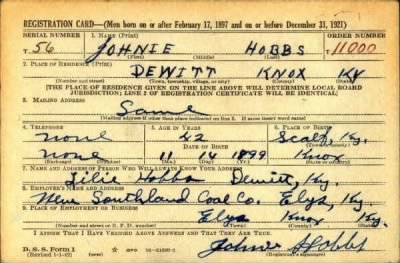 REGISTRATION CARD—(Men born on or after February 17, 1897 and on or before December 31, 1921)
SERIAL NUMBER 1. NAME (Print) ORDER NUMBER
T. 56 JOHNIE HOBBS 11000
(First) (Middle) (Last)
2. PLACE OF RESIDENCE (Print)
DEWITT KNOX KY
(Number and street) (Town, township, village, or city) (County) (State)
[THE PLACE OF RESIDENCE GIVEN ON THE LINE ABOVE WILL DETERMINE LOCAL BOARD
JURISDICTION; LINE 2 OF REGISTRATION CERTIFICATE WILL BE IDENTICAL]
3. MAILING ADDRESS
Same
(Mailing address if other than place indicated on line 2. If same insert word same)
4. TELEPHONE 5. AGE IN YEARS 6. PLACE OF BIRTH
none 42 Scalf, Ky.
DATE OF BIRTH
none 11 14 1899 Knox
(Exchange) (Number) (Mo.) (Day) (Yr.)
7. NAME AND ADDRESS OF PERSON WHO WILL ALWAYS KNOW YOUR ADDRESS
Hobbs Dewitt, Ky.
8. EMPLOYER'S NAME AND ADDRESS
New Southland Coal Co. Elys, Ky.
9. PLACE OF EMPLOYMENT OR BUSINESS
Elys Knox Ky.
(Number and street or R. F. D. number) (Town) (County) (State)
I AFFIRM THAT I HAVE VERIFIED ABOVE ANSWERS AND THAT THEY ARE TRUE.
D. S. S. Form 1
(Revised 1-1-42) GPO Johnie Hobbs
(Registrant's signature)